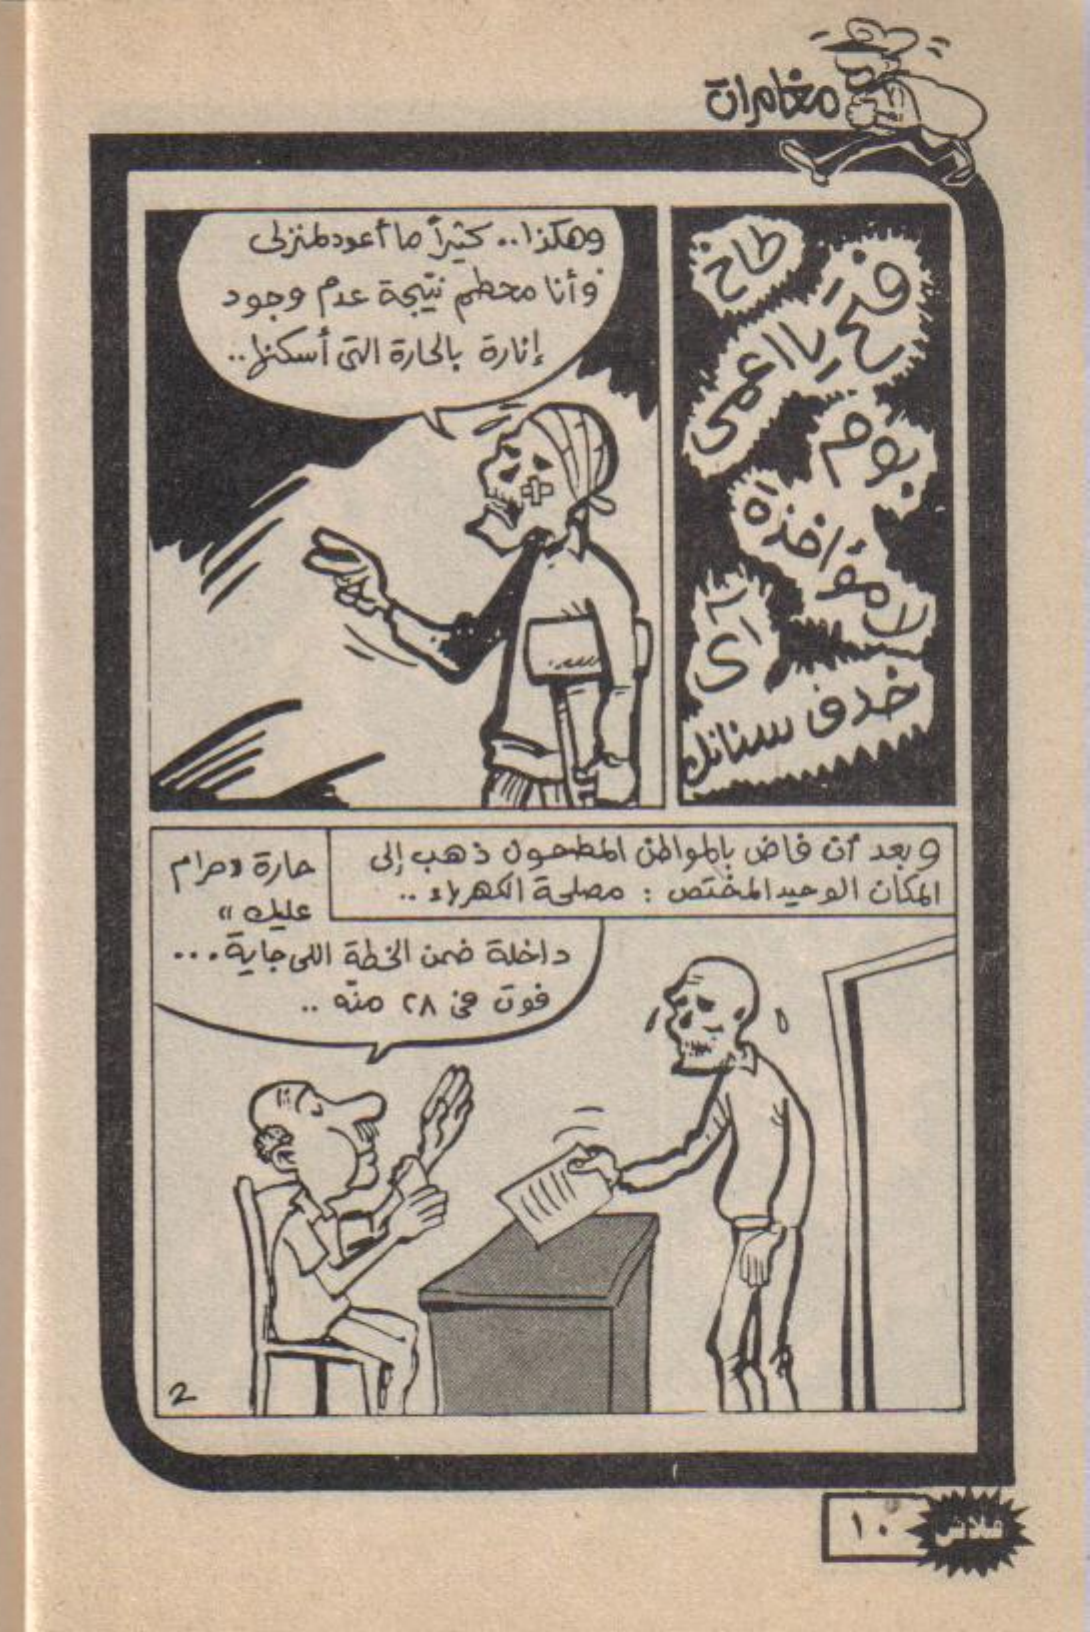 مغامرات
طاخ
فتح يا اعمى
بوم
لا مؤاخذة
آى
خدف سنانك
وهكذا.. كثيراً ما أعود لمنزلى
وأنا محطم نتيجة عدم وجود
إنارة بالحارة التى أسكنها..
وبعد أن فاض بالمواطن المطحون ذهب إلى
المكان الوحيد المختص : مصلحة الكهرباء ..
حارة «حرام
عليك»
داخلة ضمن الخطة اللى جاية...
فوت فى ٢٨ منه ..
2
فلاش
١٠